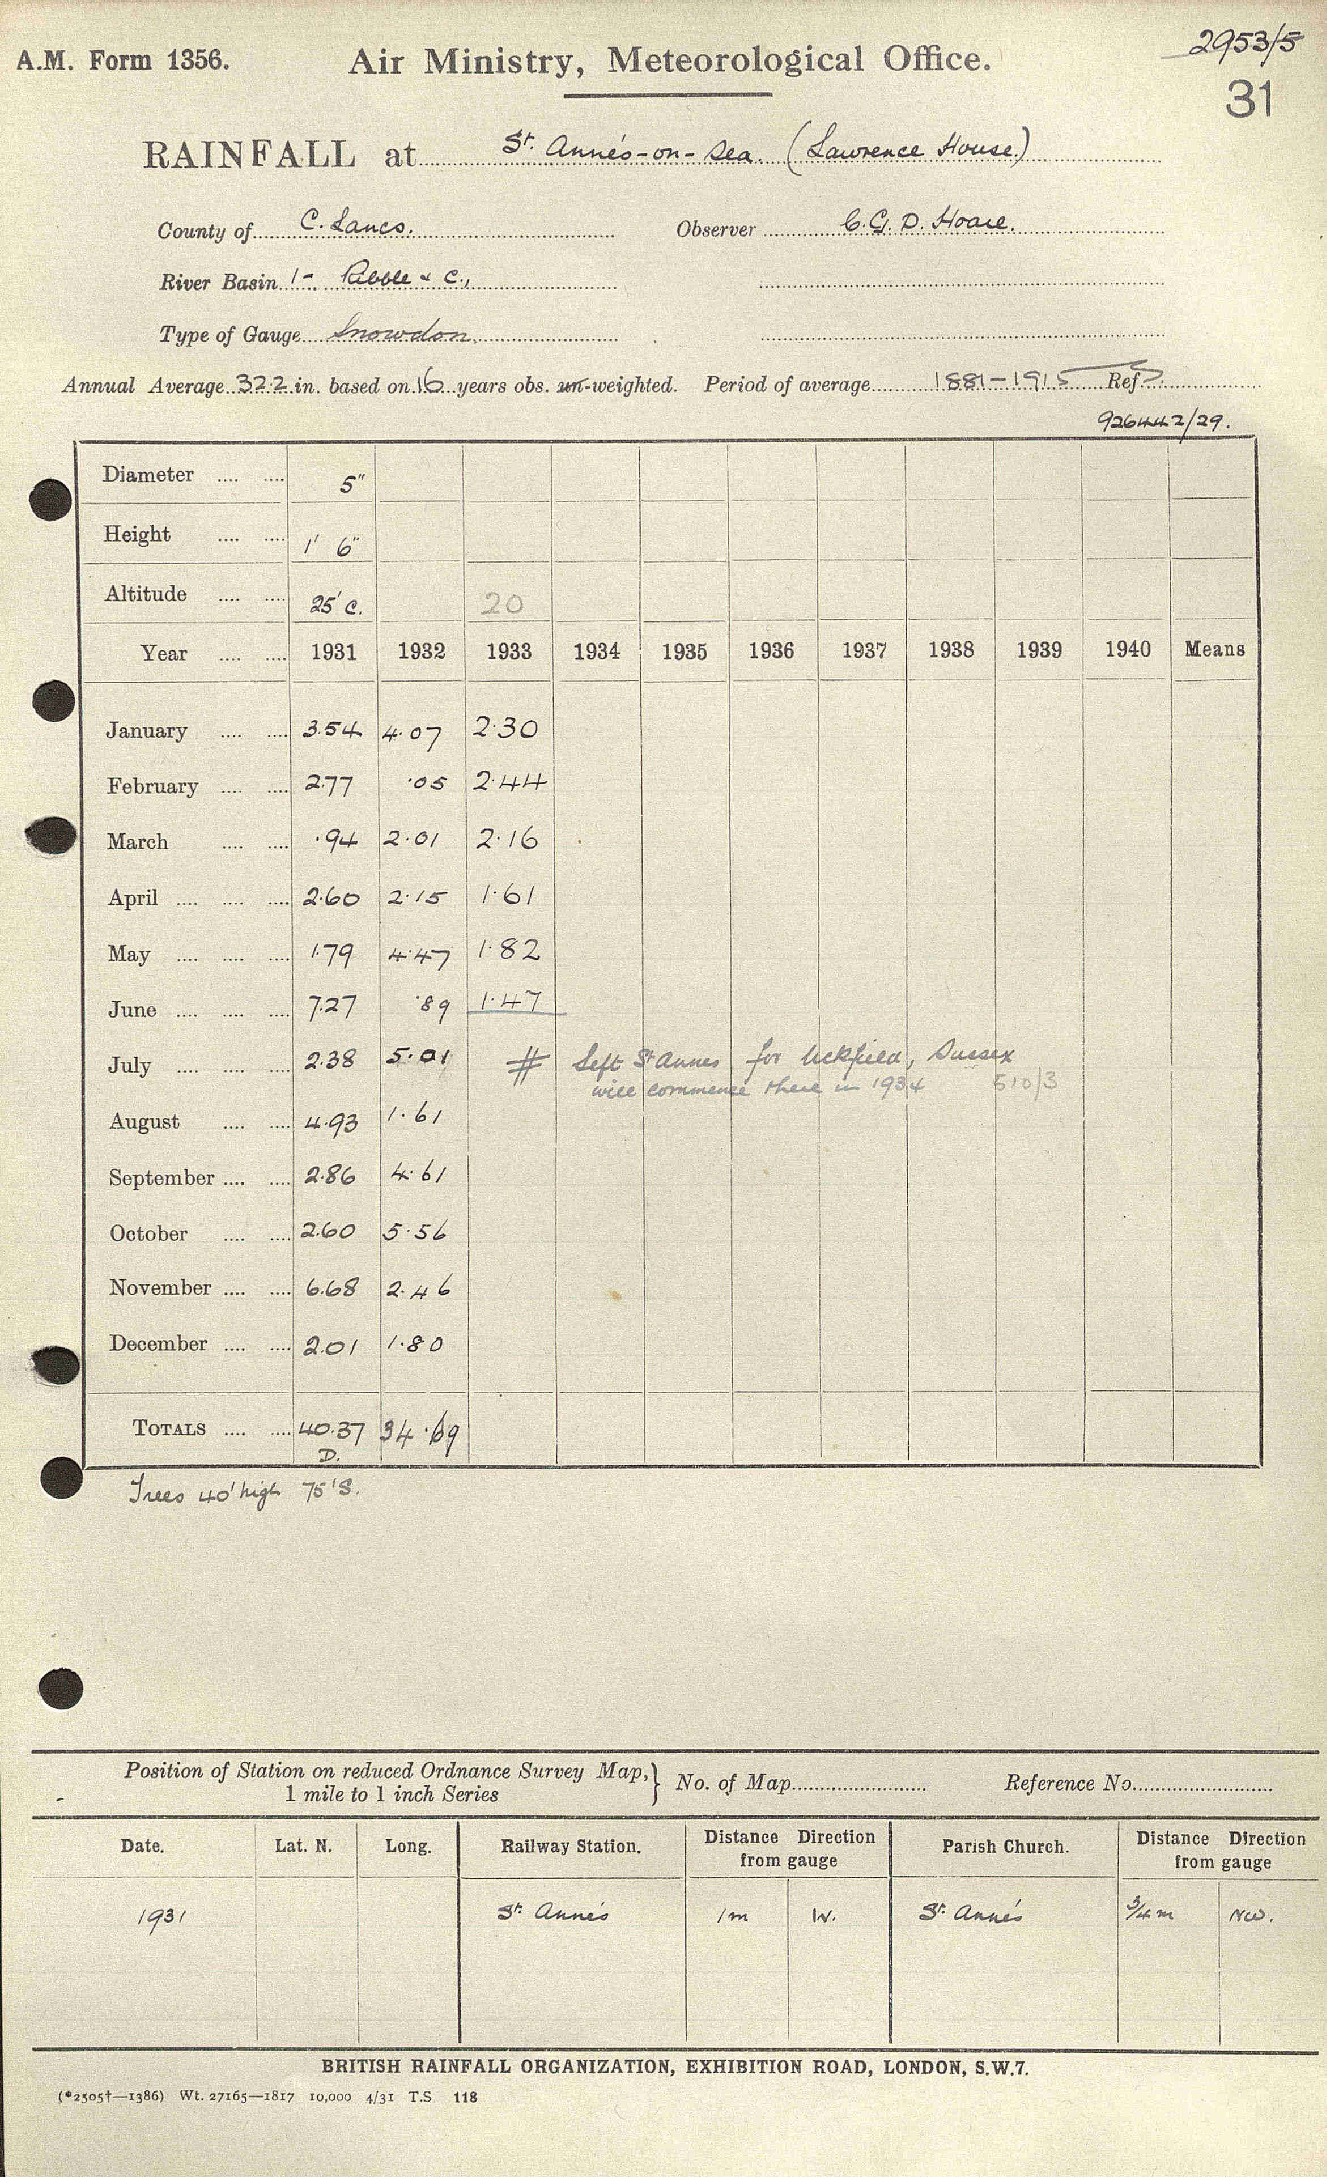 2953/5
A.M. Form 1356. Air Ministry, Meteorological Office.
31
RAINFALL at St. Anne's-on-Sea. (Lawrence House.)
County of C. Lancs. Observer C. G. D. Hoare.
River Basin 1-. Ribble & C.,
Type of Gauge Snowdon
Annual Average 32.2 in. based on 16 years obs. un-weighted. Period of average 1881-1915 Ref
926442/29.
Diameter 5"
Height 1' 6"
Altitude 25' c. 20
Year 1931 1932 1933 1934 1935 1936 1937 1938 1939 1940 Means
January 3.54 4.07 2.30
February 2.77 .05 2.44
March .94 2.01 2.16
April 2.60 2.15 1.61
May 1.79 4.47 1.82
June 7.27 .89 1.47
July 2.38 5.01 # Left St Annes for Uckfield, Sussex
will commence there in 1934 510/3
August 4.93 1.61
September 2.86 4.61
October 2.60 5.56
November 6.68 2.46
December 2.01 1.80
TOTALS 40.37 34.69
D.
Trees 40' high 75' S.
Position of Station on reduced Ordnance Survey Map, } No. of Map Reference No.
1 mile to 1 inch Series
Date. Lat. N. Long. Railway Station. Distance Direction from gauge Parish Church. Distance Direction from gauge
1931 St. Anne's 1m W. St. Anne's 3/4 m NW.
BRITISH RAINFALL ORGANIZATION, EXHIBITION ROAD, LONDON, S.W.7.
(*2505†—1386) Wt. 27165—1817 10,000 4/31 T.S. 118